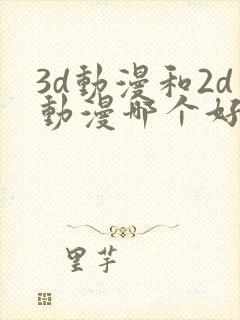 3d動漫和2d
動漫哪个好
里芋